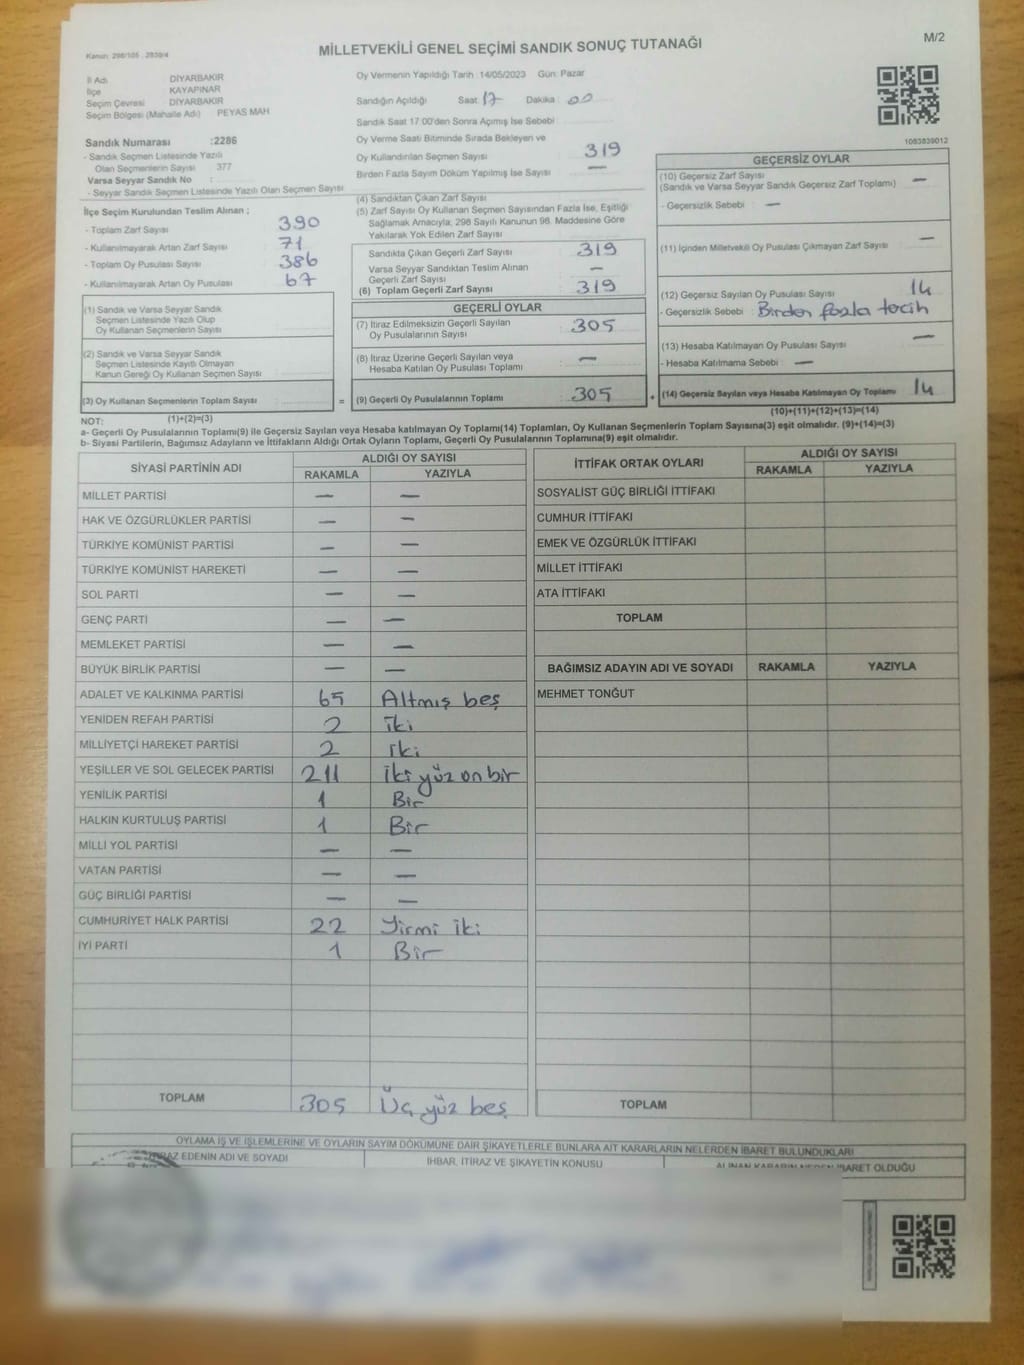 MİLLETVEKİLİ GENEL SEÇİMİ SANDIK SONUÇ TUTANAĞI
M/2
Kanun: 298/105 , 2839/4
İl Adı DİYARBAKIR
İlçe KAYAPINAR
Seçim Çevresi DİYARBAKIR
Seçim Bölgesi (Mahalle Adı) PEYAS MAH
Sandık Numarası :2286
- Sandık Seçmen Listesinde Yazılı
Olan Seçmenlerin Sayısı 377
Varsa Seyyar Sandık No :
- Seyyar Sandık Seçmen Listesinde Yazılı Olan Seçmen Sayısı
Oy Vermenin Yapıldığı Tarih :14/05/2023 Gün: Pazar
Sandığın Açıldığı Saat 17 Dakika : 00
Sandık Saat 17:00'den Sonra Açımış İse Sebebi
Oy Verme Saati Bitiminde Sırada Bekleyen ve
Oy Kullandırılan Seçmen Sayısı 319
Birden Fazla Sayım Döküm Yapılmış İse Sayısı —
1083839012
İlçe Seçim Kurulundan Teslim Alınan ;
- Toplam Zarf Sayısı 390
- Kullanılmayarak Artan Zarf Sayısı 71
- Toplam Oy Pusulası Sayısı 386
- Kullanılmayarak Artan Oy Pusulası 67
(1) Sandık ve Varsa Seyyar Sandık
Seçmen Listesinde Yazılı Olup
Oy Kullanan Seçmenlerin Sayısı
(2) Sandık ve Varsa Seyyar Sandık
Seçmen Listesinde Kayıtlı Olmayan
Kanun Gereği Oy Kullanan Seçmen Sayısı
(3) Oy Kullanan Seçmenlerin Toplam Sayısı
(1)+(2)=(3)
(4) Sandıktan Çıkan Zarf Sayısı
(5) Zarf Sayısı Oy Kullanan Seçmen Sayısından Fazla İse, Eşitliği
Sağlamak Amacıyla, 298 Sayılı Kanunun 98. Maddesine Göre
Yakılarak Yok Edilen Zarf Sayısı
Sandıkta Çıkan Geçerli Zarf Sayısı 319
Varsa Seyyar Sandıktan Teslim Alınan
Geçerli Zarf Sayısı —
(6) Toplam Geçerli Zarf Sayısı 319
GEÇERLİ OYLAR
(7) İtiraz Edilmeksizin Geçerli Sayılan
Oy Pusulalarının Sayısı 305
(8) İtiraz Üzerine Geçerli Sayılan veya
Hesaba Katılan Oy Pusulası Toplamı —
= (9) Geçerli Oy Pusulalarının Toplamı 305
GEÇERSİZ OYLAR
(10) Geçersiz Zarf Sayısı
(Sandık ve Varsa Seyyar Sandık Geçersiz Zarf Toplamı) —
- Geçersizlik Sebebi : —
(11) İçinden Milletvekili Oy Pusulası Çıkmayan Zarf Sayısı —
(12) Geçersiz Sayılan Oy Pusulası Sayısı 14
- Geçersizlik Sebebi : Birden fazla tercih
(13) Hesaba Katılmayan Oy Pusulası Sayısı —
- Hesaba Katılmama Sebebi : —
+ (14) Geçersiz Sayılan veya Hesaba Katılmayan Oy Toplamı 14
(10)+(11)+(12)+(13)=(14)
NOT:
a- Geçerli Oy Pusulalarının Toplamı(9) ile Geçersiz Sayılan veya Hesaba katılmayan Oy Toplamı(14) Toplamları, Oy Kullanan Seçmenlerin Toplam Sayısına(3) eşit olmalıdır. (9)+(14)=(3)
b- Siyasi Partilerin, Bağımsız Adayların ve İttifakların Aldığı Ortak Oyların Toplamı, Geçerli Oy Pusulalarının Toplamına(9) eşit olmalıdır.
SİYASİ PARTİNİN ADI ALDIĞI OY SAYISI
RAKAMLA YAZIYLA
MİLLET PARTİSİ — —
HAK VE ÖZGÜRLÜKLER PARTİSİ — —
TÜRKİYE KOMÜNİST PARTİSİ — —
TÜRKİYE KOMÜNİST HAREKETİ — —
SOL PARTİ — —
GENÇ PARTİ — —
MEMLEKET PARTİSİ — —
BÜYÜK BİRLİK PARTİSİ — —
ADALET VE KALKINMA PARTİSİ 65 Altmış beş
YENİDEN REFAH PARTİSİ 2 iki
MİLLİYETÇİ HAREKET PARTİSİ 2 iki
YEŞİLLER VE SOL GELECEK PARTİSİ 211 iki yüz on bir
YENİLİK PARTİSİ 1 Bir
HALKIN KURTULUŞ PARTİSİ 1 Bir
MİLLİ YOL PARTİSİ — —
VATAN PARTİSİ — —
GÜÇ BİRLİĞİ PARTİSİ — —
CUMHURİYET HALK PARTİSİ 22 Yirmi iki
İYİ PARTİ 1 Bir
TOPLAM 305 Üç yüz beş
İTTİFAK ORTAK OYLARI ALDIĞI OY SAYISI
RAKAMLA YAZIYLA
SOSYALİST GÜÇ BİRLİĞİ İTTİFAKI
CUMHUR İTTİFAKI
EMEK VE ÖZGÜRLÜK İTTİFAKI
MİLLET İTTİFAKI
ATA İTTİFAKI
TOPLAM
BAĞIMSIZ ADAYIN ADI VE SOYADI RAKAMLA YAZIYLA
MEHMET TONĞUT
TOPLAM
OYLAMA İŞ VE İŞLEMLERİNE VE OYLARIN SAYIM DÖKÜMÜNE DAİR ŞİKAYETLERLE BUNLARA AİT KARARLARIN NELERDEN İBARET BULUNDUKLARI
EDENİN ADI VE SOYADI İHBAR, İTİRAZ VE ŞİKAYETİN KONUSU OLDUĞU